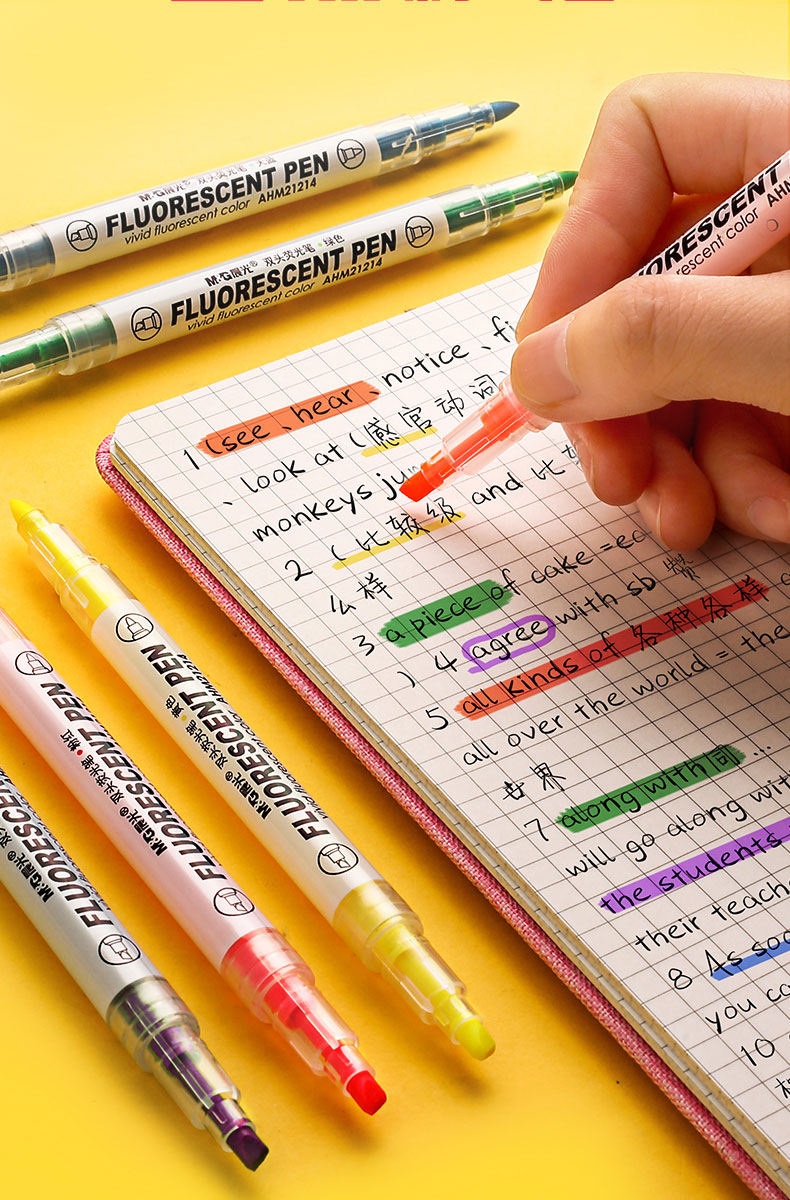 M&G晨光® 双头荧光笔·天蓝
FLUORESCENT PEN
vivid fluorescent color AHM21214
M&G晨光® 双头荧光笔·绿色
FLUORESCENT PEN
vivid fluorescent color AHM21214
FLUORESCENT
1 (see、hear、notice、
、look at (感官动词)
monkeys
2 (比较级 and 比
么样
3 a piece of cake =
) 4 agree with sb 赞
5 all kinds of 各种各样
all over the world = the
世界
7 along with 同 ...
will go along
the students
their
8 As
you
10
M&G晨光® 双头荧光笔·黄色
FLUORESCENT PEN
FLUORESCENT PEN
M&G晨光® 双头荧光笔·粉红
FLUORESCENT PEN
FLUORESCENT PEN
M&G晨光®
FLUORESCENT